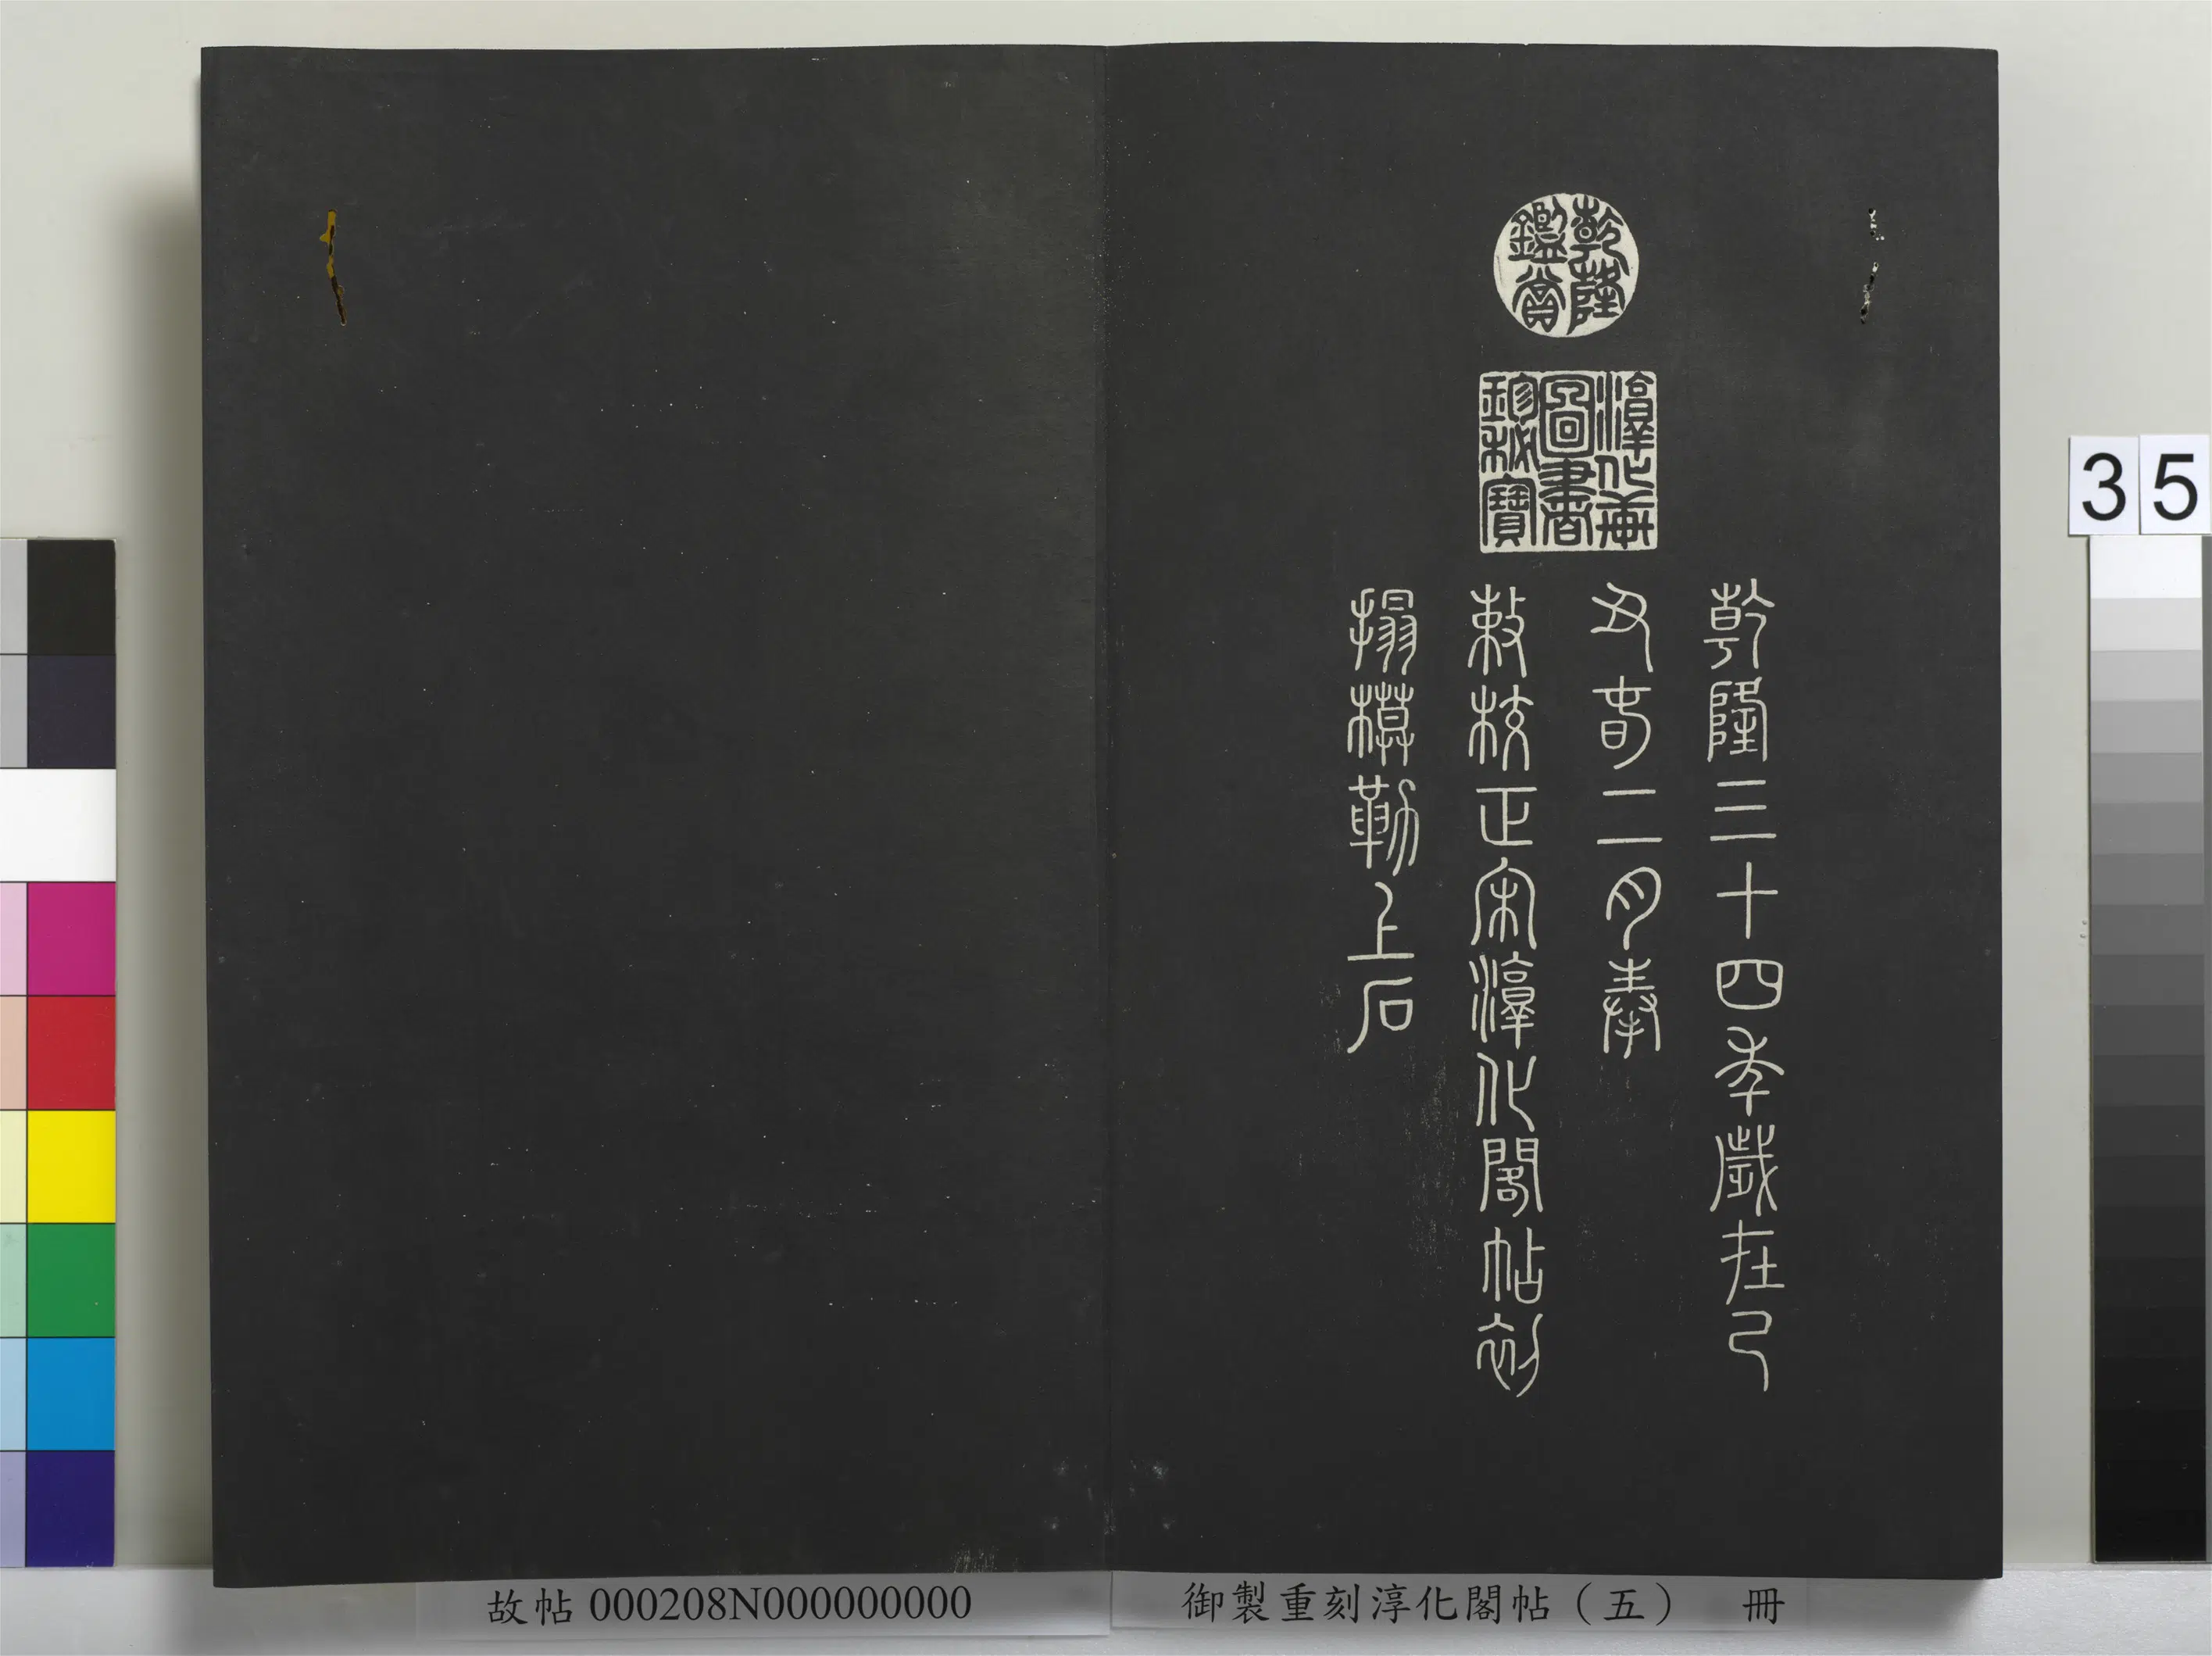 乾隆鑑賞
淳化軒
圖書
珍秘寶
乾隆三十四年歲在己
丑春二月奉
敕校正宋淳化閣帖初
搨模勒上石
35
御製重刻淳化閣帖（五） 冊
故帖 000208N000000000